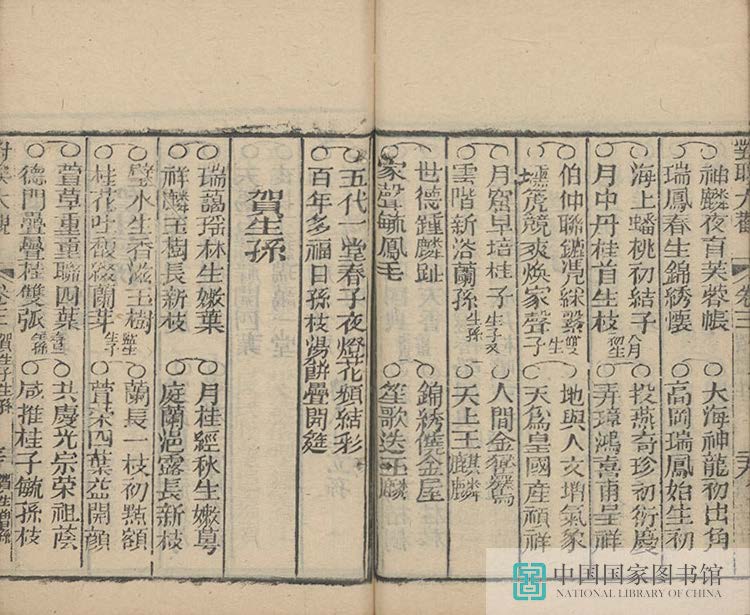 對聯大觀 卷三
神麟夜育芙蓉帳 大海神龍初出角
瑞鳳春生錦綉 高岡瑞鳳始生初
海上蟠桃初結子 八月 投燕奇珍初衍慶
月中丹桂首生枝 賀生 弄璋鴻喜甫呈祥
伯仲聯鑣凴綵 地與人文增氣象
競爽煥家聲子 生 天爲皇國產禎祥
月窟早培桂子 又生子 人間金鸑鷟
雲階新浴蘭孫 生孫 天上玉麒麟
世德鍾麟趾 錦綉僥金屋
家聲毓鳳毛 笙歌送玉麟
五代一堂春子夜燈花頻結彩
百年多福日孫枝湯餅疊開筵
賀生孫
瑞靄瑤林生嫩葉 月桂經秋生嫩萼
祥麟玉樹長新枝 庭蘭浥露長新枝
璧水生香滋玉樹 蘭長一枝初點額
桂花吐馥綴蘭芽 生子 萱榮四葉益開顏
萱草重重聯四葉 共慶光宗荣祖蔭
德門疊疊桂雙弧 咸推桂子毓孫枝
對聯大觀 卷三 賀生子生孫
中国国家图书馆
NATIONAL LIBRARY OF CHINA